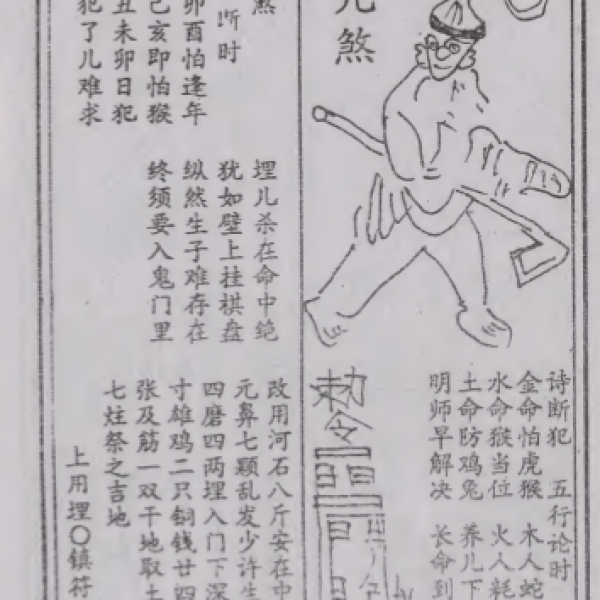 儿煞
诗断犯 五行论时
金命怕虎猴 木人蛇
水命猴当位 火人耗
土命防鸡兔 养儿下
明师早解决 长命到
勅令
煞
断时
卯酉怕逢年
己亥即怕猴
丑未卯日犯
犯了儿难求
埋儿杀在命中绝
犹如壁上挂棋盘
纵然生子难存在
终须要入鬼门里
改用河石八斤安在中
元鼻七颗乱发少许生
四磨四两埋入门下深
寸雄鸡二只铜钱廿四
张及筋一双干地取土
七炷祭之吉地
上用埋〇镇符